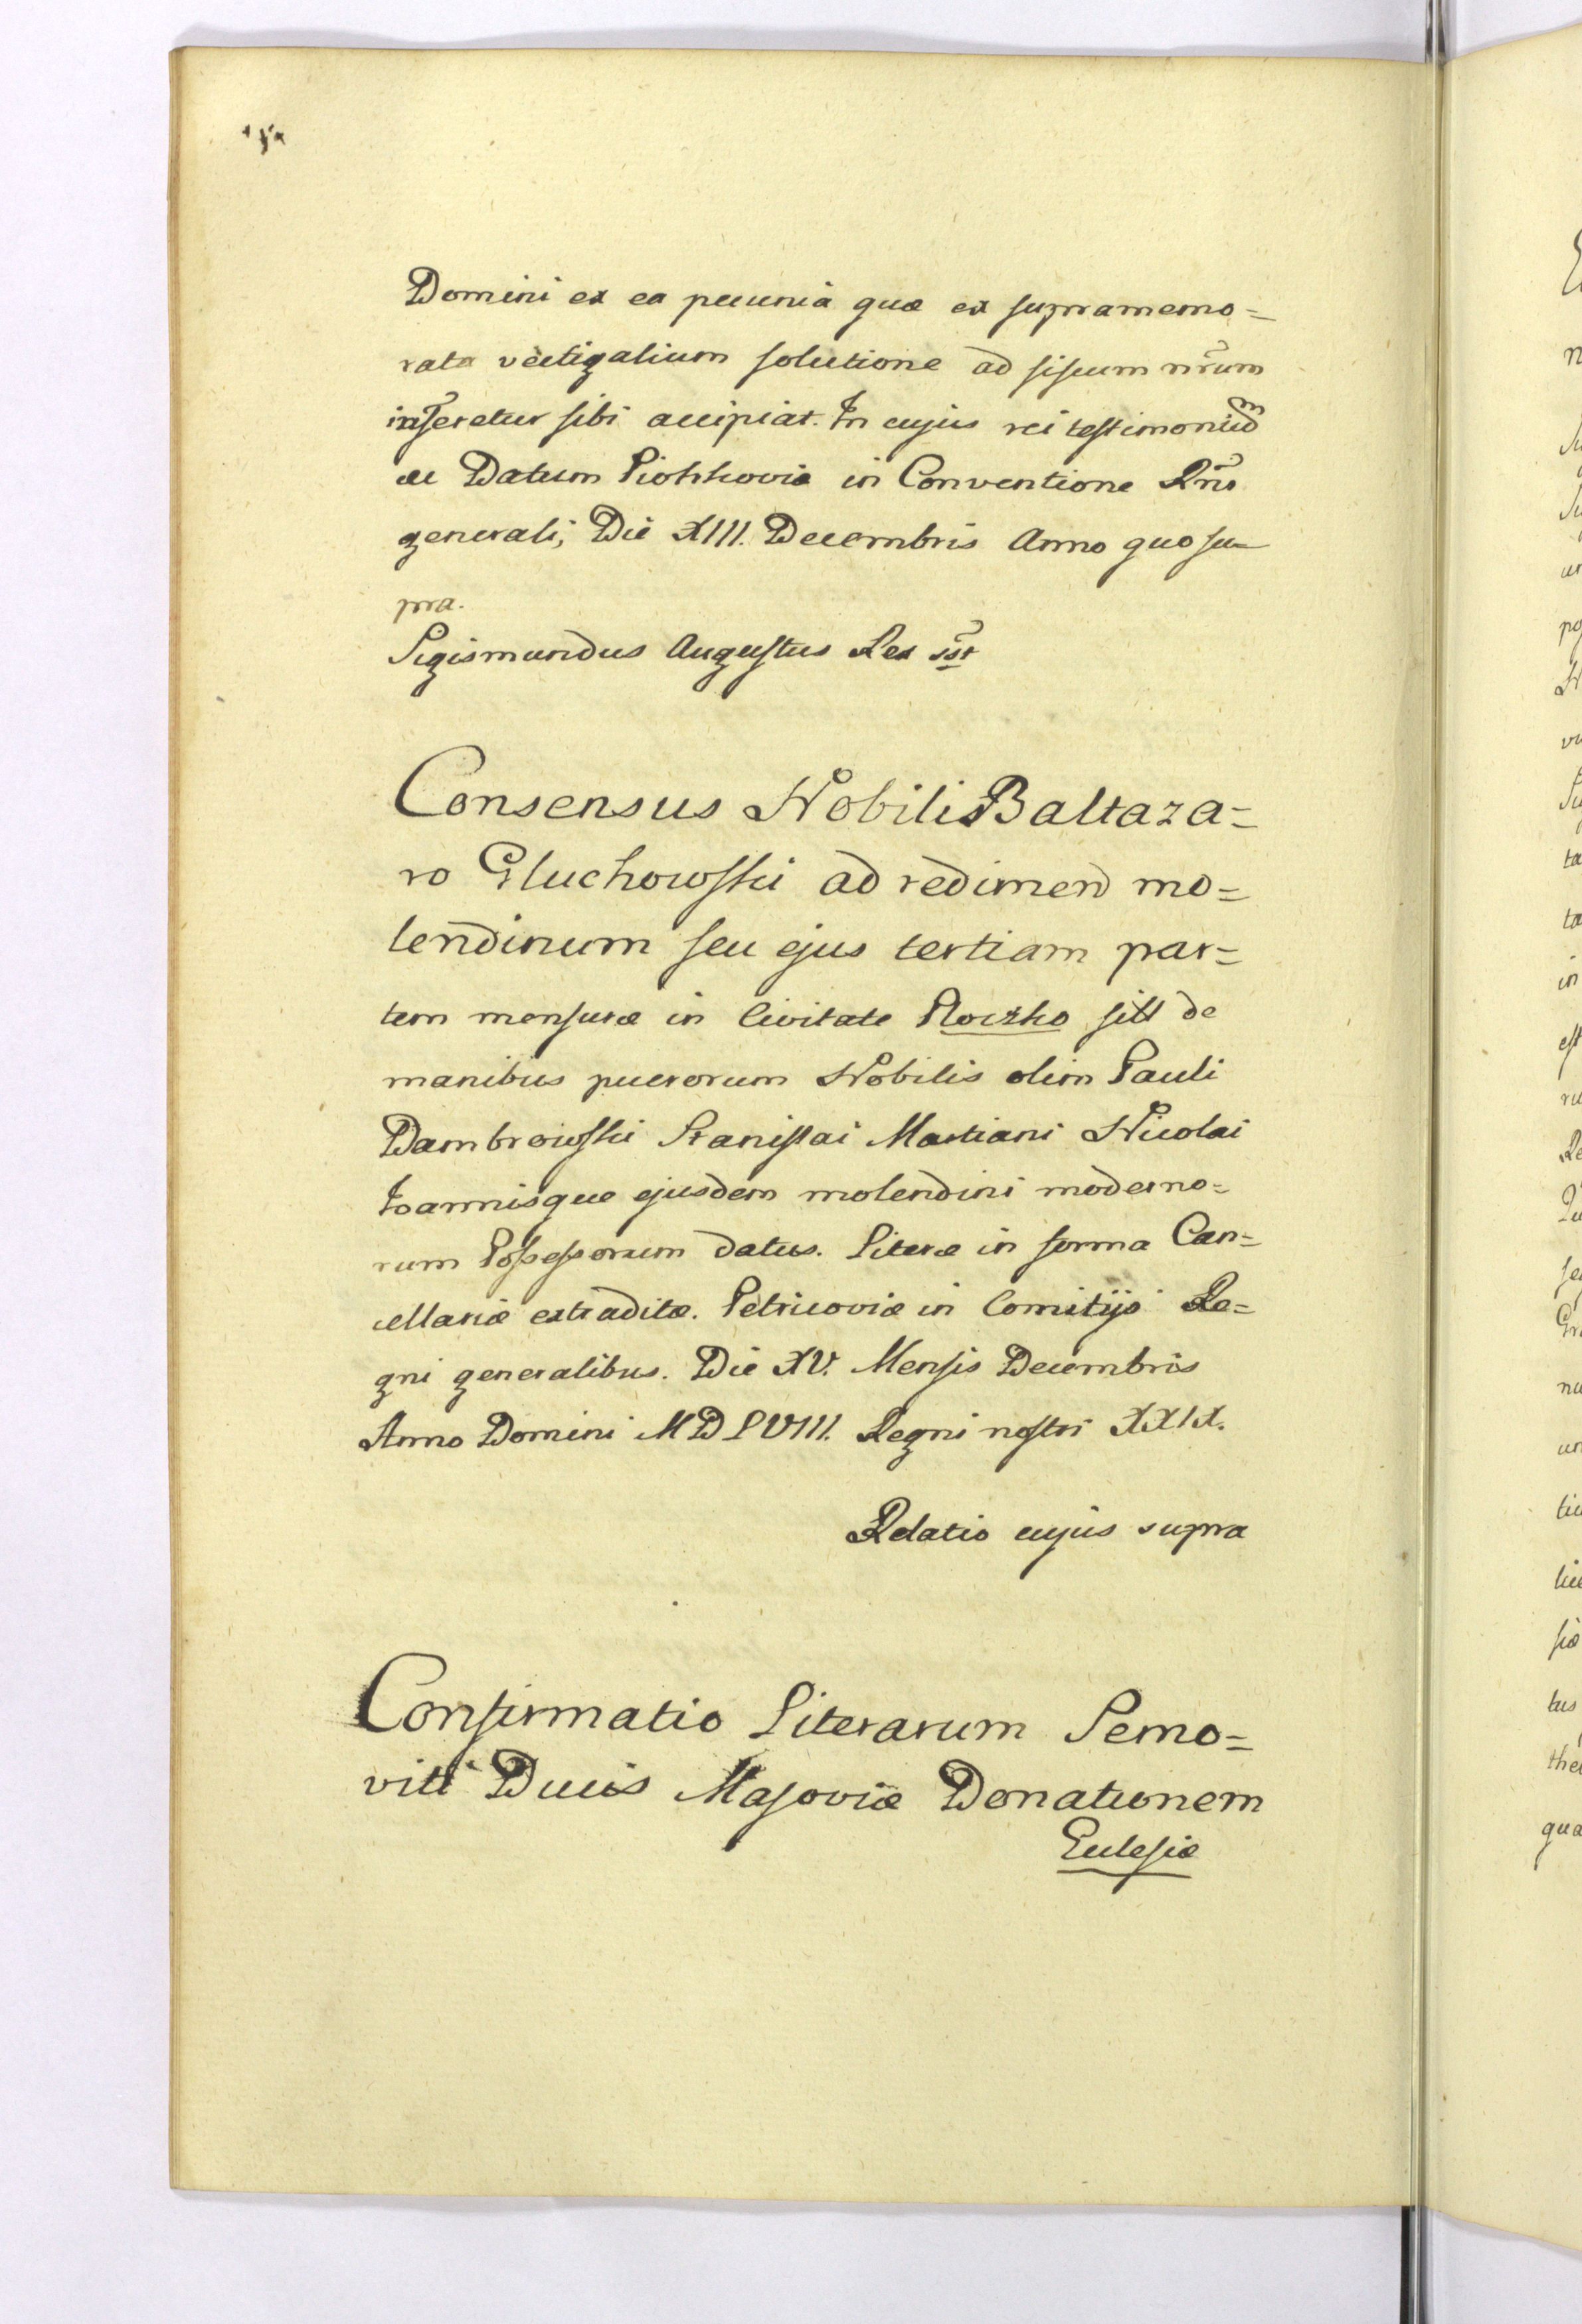 Domini ex ea pecunia quæ ex supramemo=
rata vectigalium solutione ad fiscum nr̃um
inferetur sibi accipiat. In cujus rei testimoniũ
ec Datum Piotrkoviæ in Conventione Rñi
generali, Die XIII. Decembris Anno quo su=
pra.
Sigismundus Augustus Rex sst
Consensus Nobili Baltaza=
ro Gluchowski ad redimend mo=
lendinum seu ejus tertiam par=
tem mensuræ in Civitate Ploczko sitt de
manibus puerorum Nobilis olim Pauli
Dambrowski Stanislai Martiani Nicolai
Joannisque ejusdem molendini moderno=
rum Possessorum datus. Literæ in forma Can=
cellariæ extraditæ. Petricoviæ in Comitijs Re=
gni generalibus. Die XV. Mensis Decembris
Anno Domini MDLVIII. Regni nostri XXIX.
Relatio cujus supra
Confirmatio Literarum Semo=
viti Ducis Masoviæ Donationem
Ecclesiæ